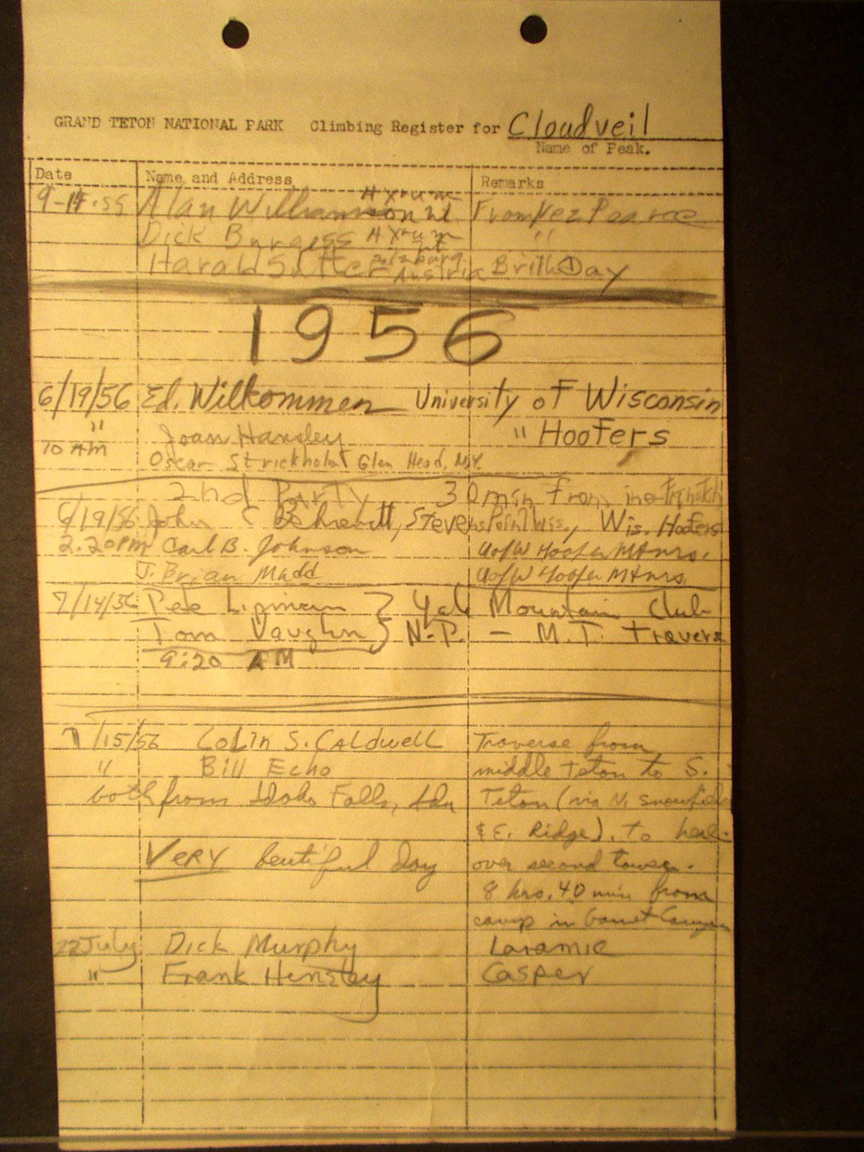 GRAND TETON NATIONAL PARK Climbing Register for Cloudveil
Name of Peak.
Date Name and Address Remarks
9-14-55 Alan Williamson From Nez Pearce
Dick Burgess "
Harald Sutter Salzburg Austria BrithDay
1956
6/19/56 Ed. Wilkommen University of Wisconsin
" Joan Hansley " Hoofers
10 AM
Oscar Strickholm Glen Head, N.Y.
2nd Party 30 min from
6/19/56 John C Behrendt, Stevens Point Wis., Wis. Hoofers
2:20 PM Carl B. Johnson U of W Hoofer Mtnrs.
J. Brian Mudd U of W Hoofer Mtnrs.
7/14/56 Pete Lipman } Yale Mountain Club
Tom Vaughn } N.P. - M.T. travers
9:20 AM
7/15/56 Colin S. Caldwell Traverse from
" Bill Echo middle Teton to S.
both from Idaho Falls, Ida Teton (via N. snowfield
& E. Ridge). to here
VERY beutiful day over second tower.
8 hrs. 40 min from
camp in Garnet Canyon
22 July Dick Murphy Laramie
" Frank Hensley Casper